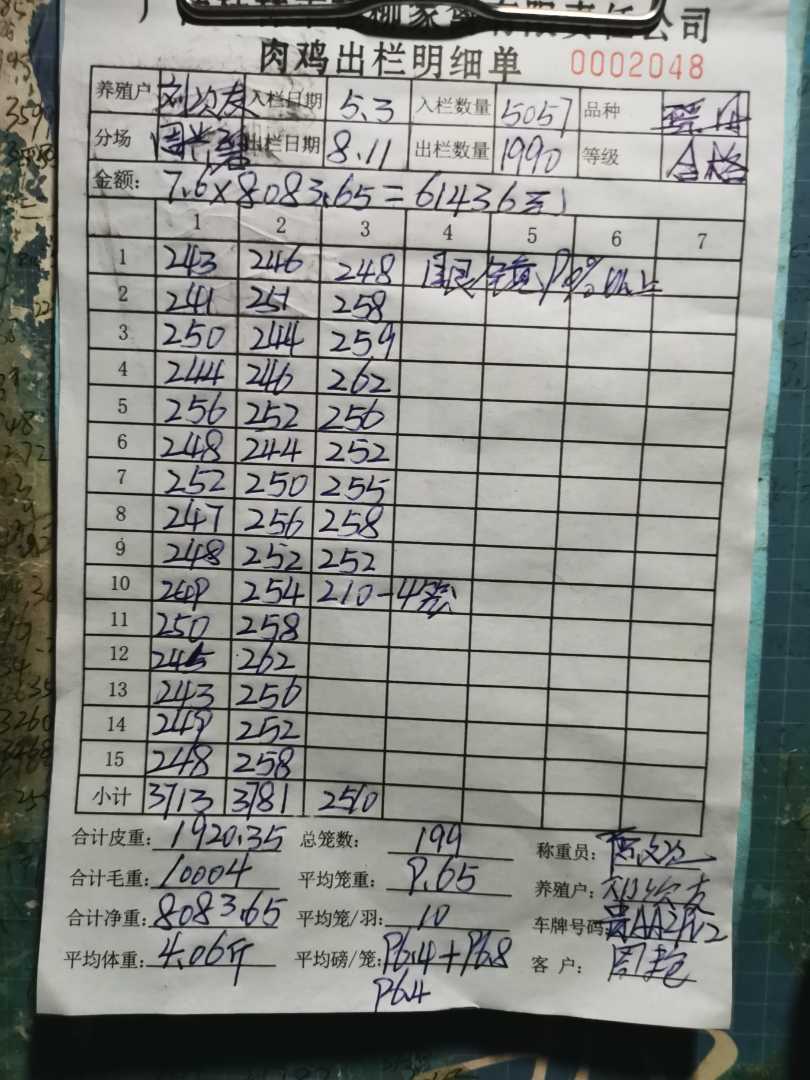 有限责任公司
肉鸡出栏明细单 0002048
养殖户 刘次友 入栏日期 5.3 入栏数量 5057 品种
分场 出栏日期 8.11 出栏数量 1990 等级 合格
金额: 7.6×8083.65=61436元
1 2 3 4 5 6 7
1 243 246 248
2 241 251 258
3 250 244 259
4 244 246 262
5 256 252 256
6 248 244 252
7 252 250 255
8 247 256 258
9 248 252 252
10 254 210-4笼
11 250 258
12 245 262
13 243 256
14 249 252
15 248 258
小计 3713 3781 2510
合计皮重: 1920.35 总笼数: 199 称重员:
合计毛重: 10004 平均笼重: 9.65 养殖户:
合计净重: 8083.65 平均笼/羽: 10 车牌号码:
平均体重: 4.06斤 平均磅/笼: P6.4+P6.8 客户:
P6.4